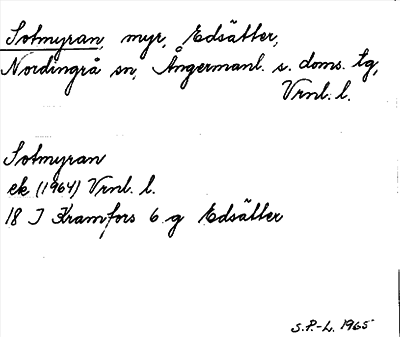 Sotmyran, myr, Edsätter,
Nordingrå sn, Ångermanl. s. doms. tg,
Vrnl. l.
Sotmyran
ek (1964) Vrnl. l.
18 I Kramfors 6 g Edsätter
S.P.-L. 1965